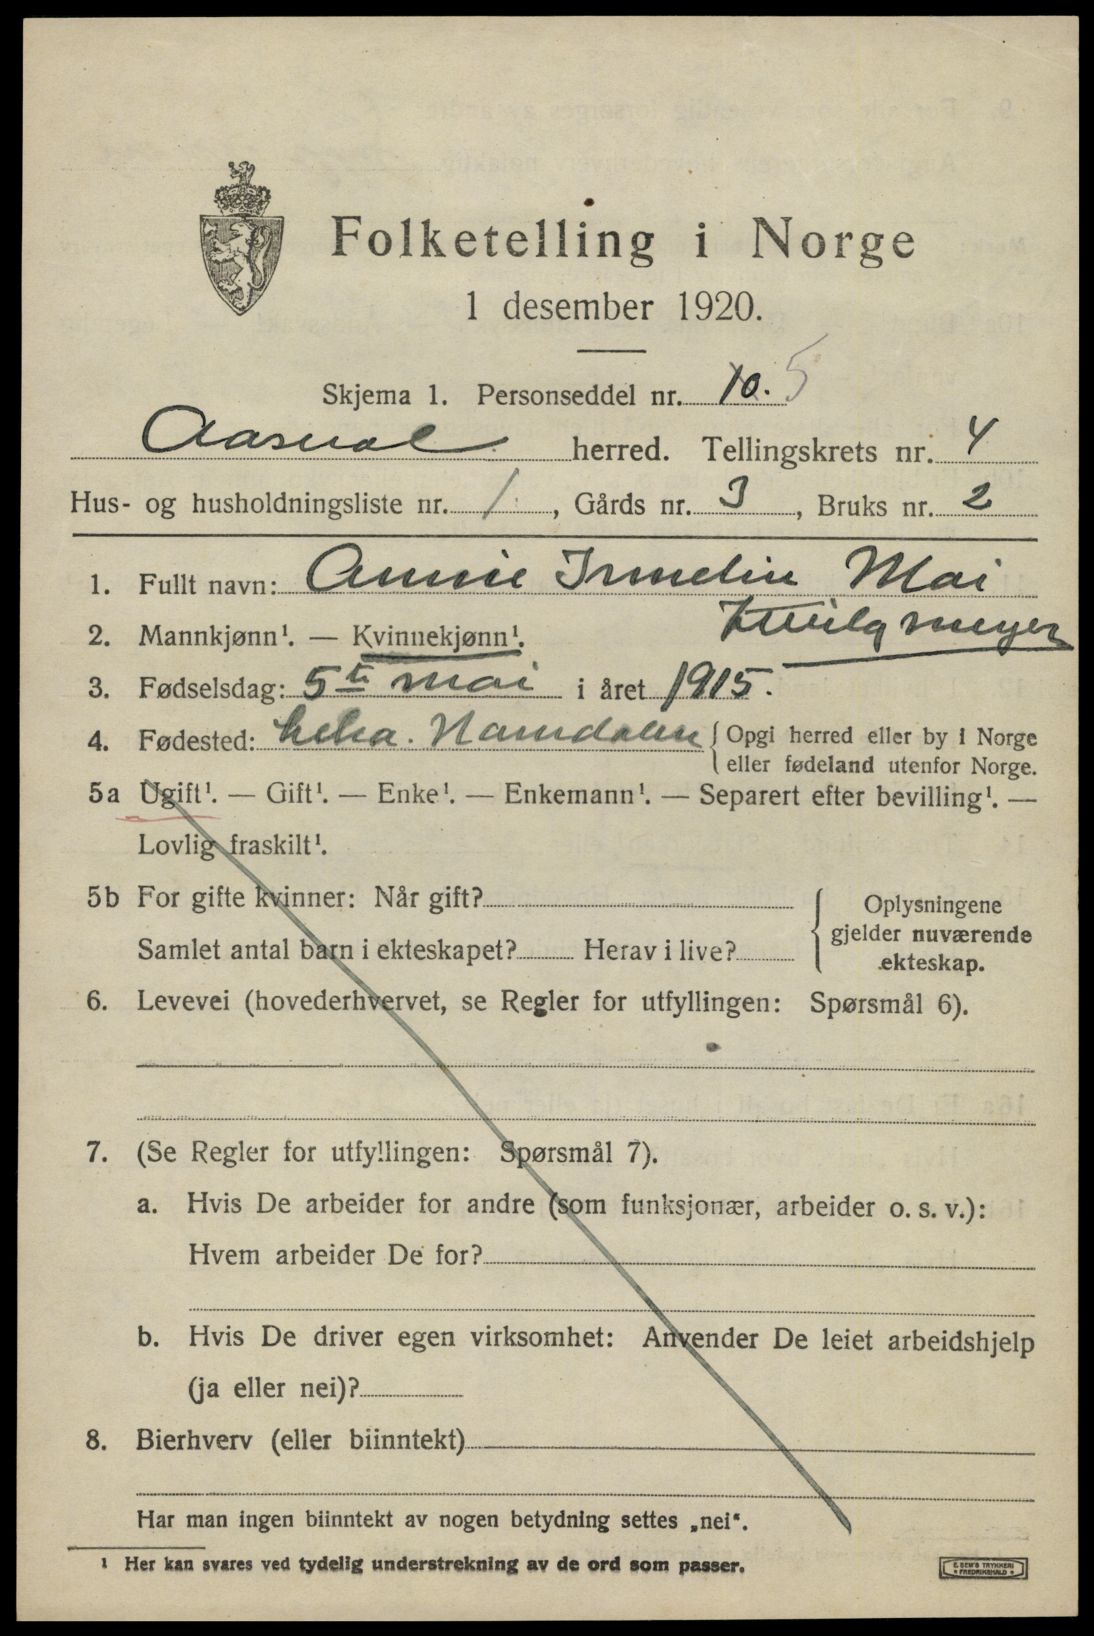 Folketelling i Norge
1 desember 1920.
Skjema 1. Personseddel nr. 10. 5
Aasnæs herred. Tellingskrets nr. 4
Hus- og husholdningsliste nr. 1, Gårds nr. 3, Bruks nr. 2
1. Fullt navn: Annie Irmelin Mai
meyer
2. Mannkjønn¹. — Kvinnekjønn¹.
3. Fødselsdag: 5te mai i året 1915.
4. Fødested: Leka. Namdalen { Opgi herred eller by i Norge
eller fødeland utenfor Norge.
5a Ugift¹. — Gift¹. — Enke¹. — Enkemann¹. — Separert efter bevilling¹. —
Lovlig fraskilt¹.
5b For gifte kvinner: Når gift?
Samlet antal barn i ekteskapet? Herav i live?
{ Oplysningene
gjelder nuværende
ekteskap.
6. Levevei (hovederhvervet, se Regler for utfyllingen: Spørsmål 6).
7. (Se Regler for utfyllingen: Spørsmål 7).
a. Hvis De arbeider for andre (som funksjonær, arbeider o. s. v.):
Hvem arbeider De for?
b. Hvis De driver egen virksomhet: Anvender De leiet arbeidshjelp
(ja eller nei)?
8. Bierhverv (eller biinntekt)
Har man ingen biinntekt av nogen betydning settes „nei“.
¹ Her kan svares ved tydelig understrekning av de ord som passer.
E. SEM'S TRYKKERI
• FREDRIKSHALD •